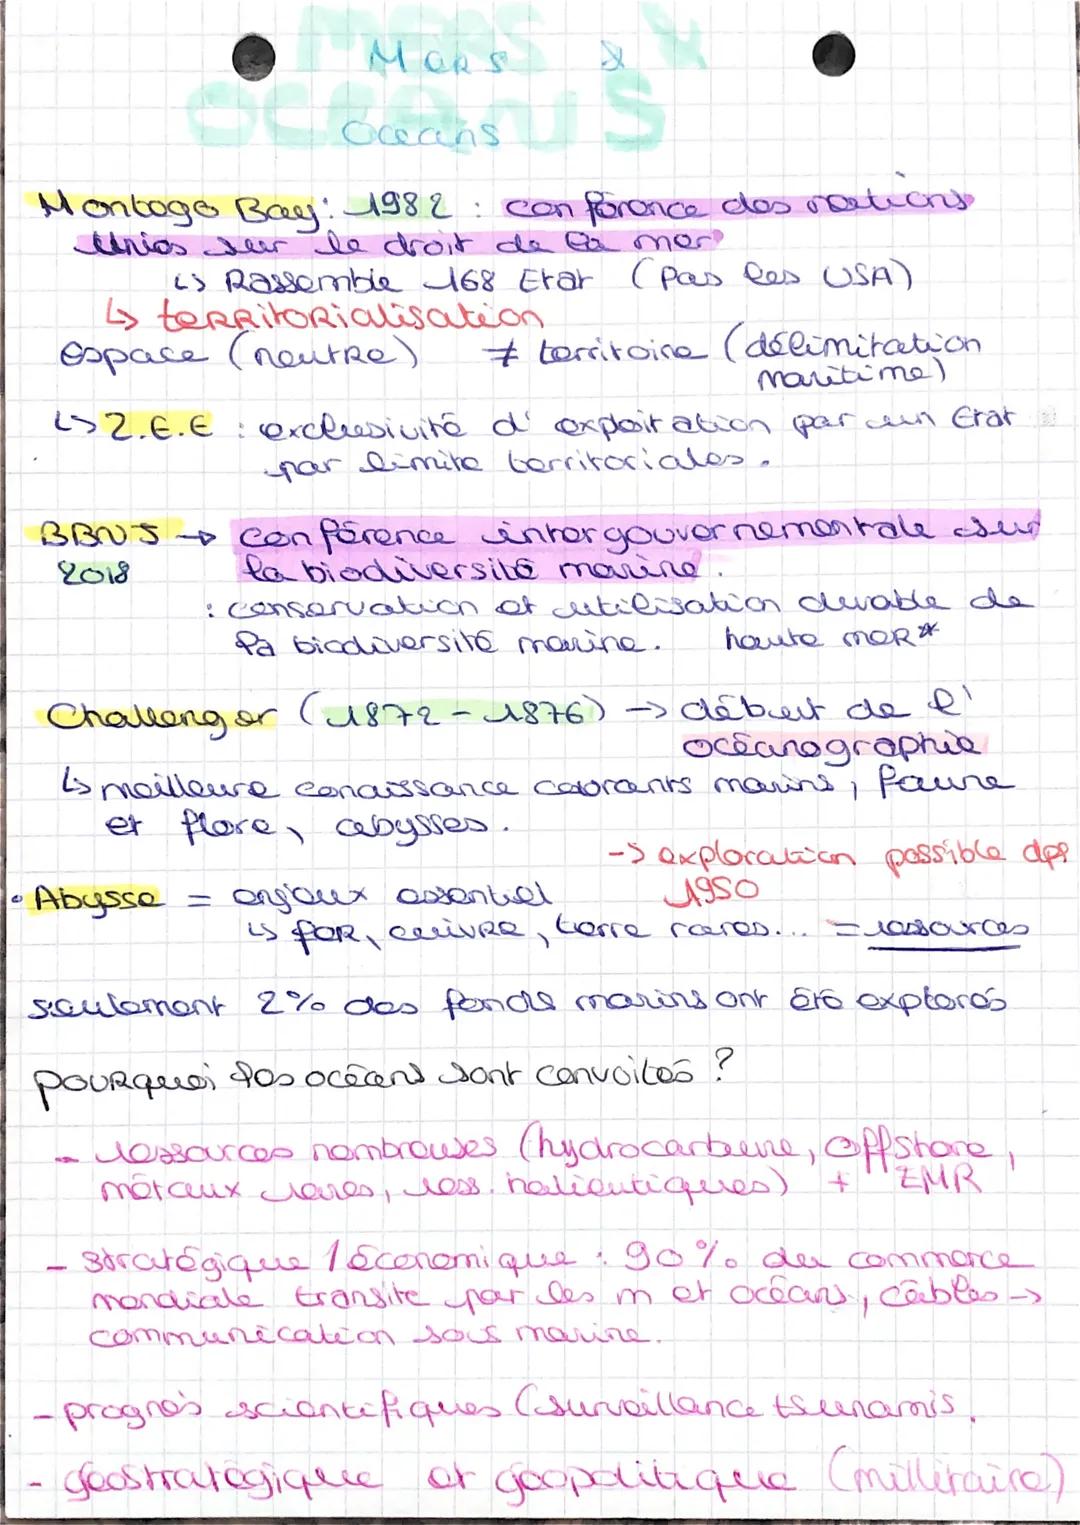 MERS &
OCEANS
Mers &
Oceans
Montego Bay : 1982 : conférence des nations
Unies sur le droit de la mer
↳ Rassemble 168 Etat (Pas les USA)
↳ territorialisation
espace (neutre) ≠ territoire (délimitation
maritime)
↳ Z.E.E : exclusivité d'exploitation par un Etat
par limite territoriales.
BBNJ → conférence intergouvernementale sur
2018 la biodiversité marine.
: conservation et utilisation durable de
la biodiversité marine. haute mer*
Challenger (1872-1876) → début de l'
océanographie
↳ meilleure conaissance courants marins, faune
et flore, abysses.
-> exploration possible dps
1950
• Abysse = enjeux essentiel
↳ fer, cuivre, terre rares... = ressources
seulement 2% des fonds marins ont été explorés
pourquoi les océans sont convoités ?
- ressources nombreuses (hydrocarbure, offshore,
métaux rares, ress. halieutiques) + EMR
- stratégique / économique : 90% du commerce
mondiale transite par les m et océans, câbles ->
communication sous marine.
- progrès scientifiques (surveillance tsunamis.
- géostratégique et géopolitique (millitaire)